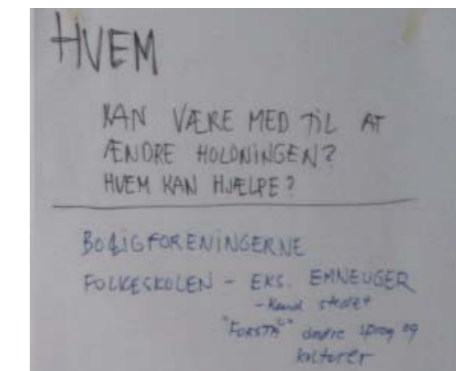 HVEM
KAN VÆRE MED TIL AT
ÆNDRE HOLDNINGEN?
HVEM KAN HJÆLPE?
BOLIGFORENINGERNE
FOLKESKOLEN - EKS. EMNEUGER
- Kend stedet
"FORSTÅ" andre sprog og
kulturer